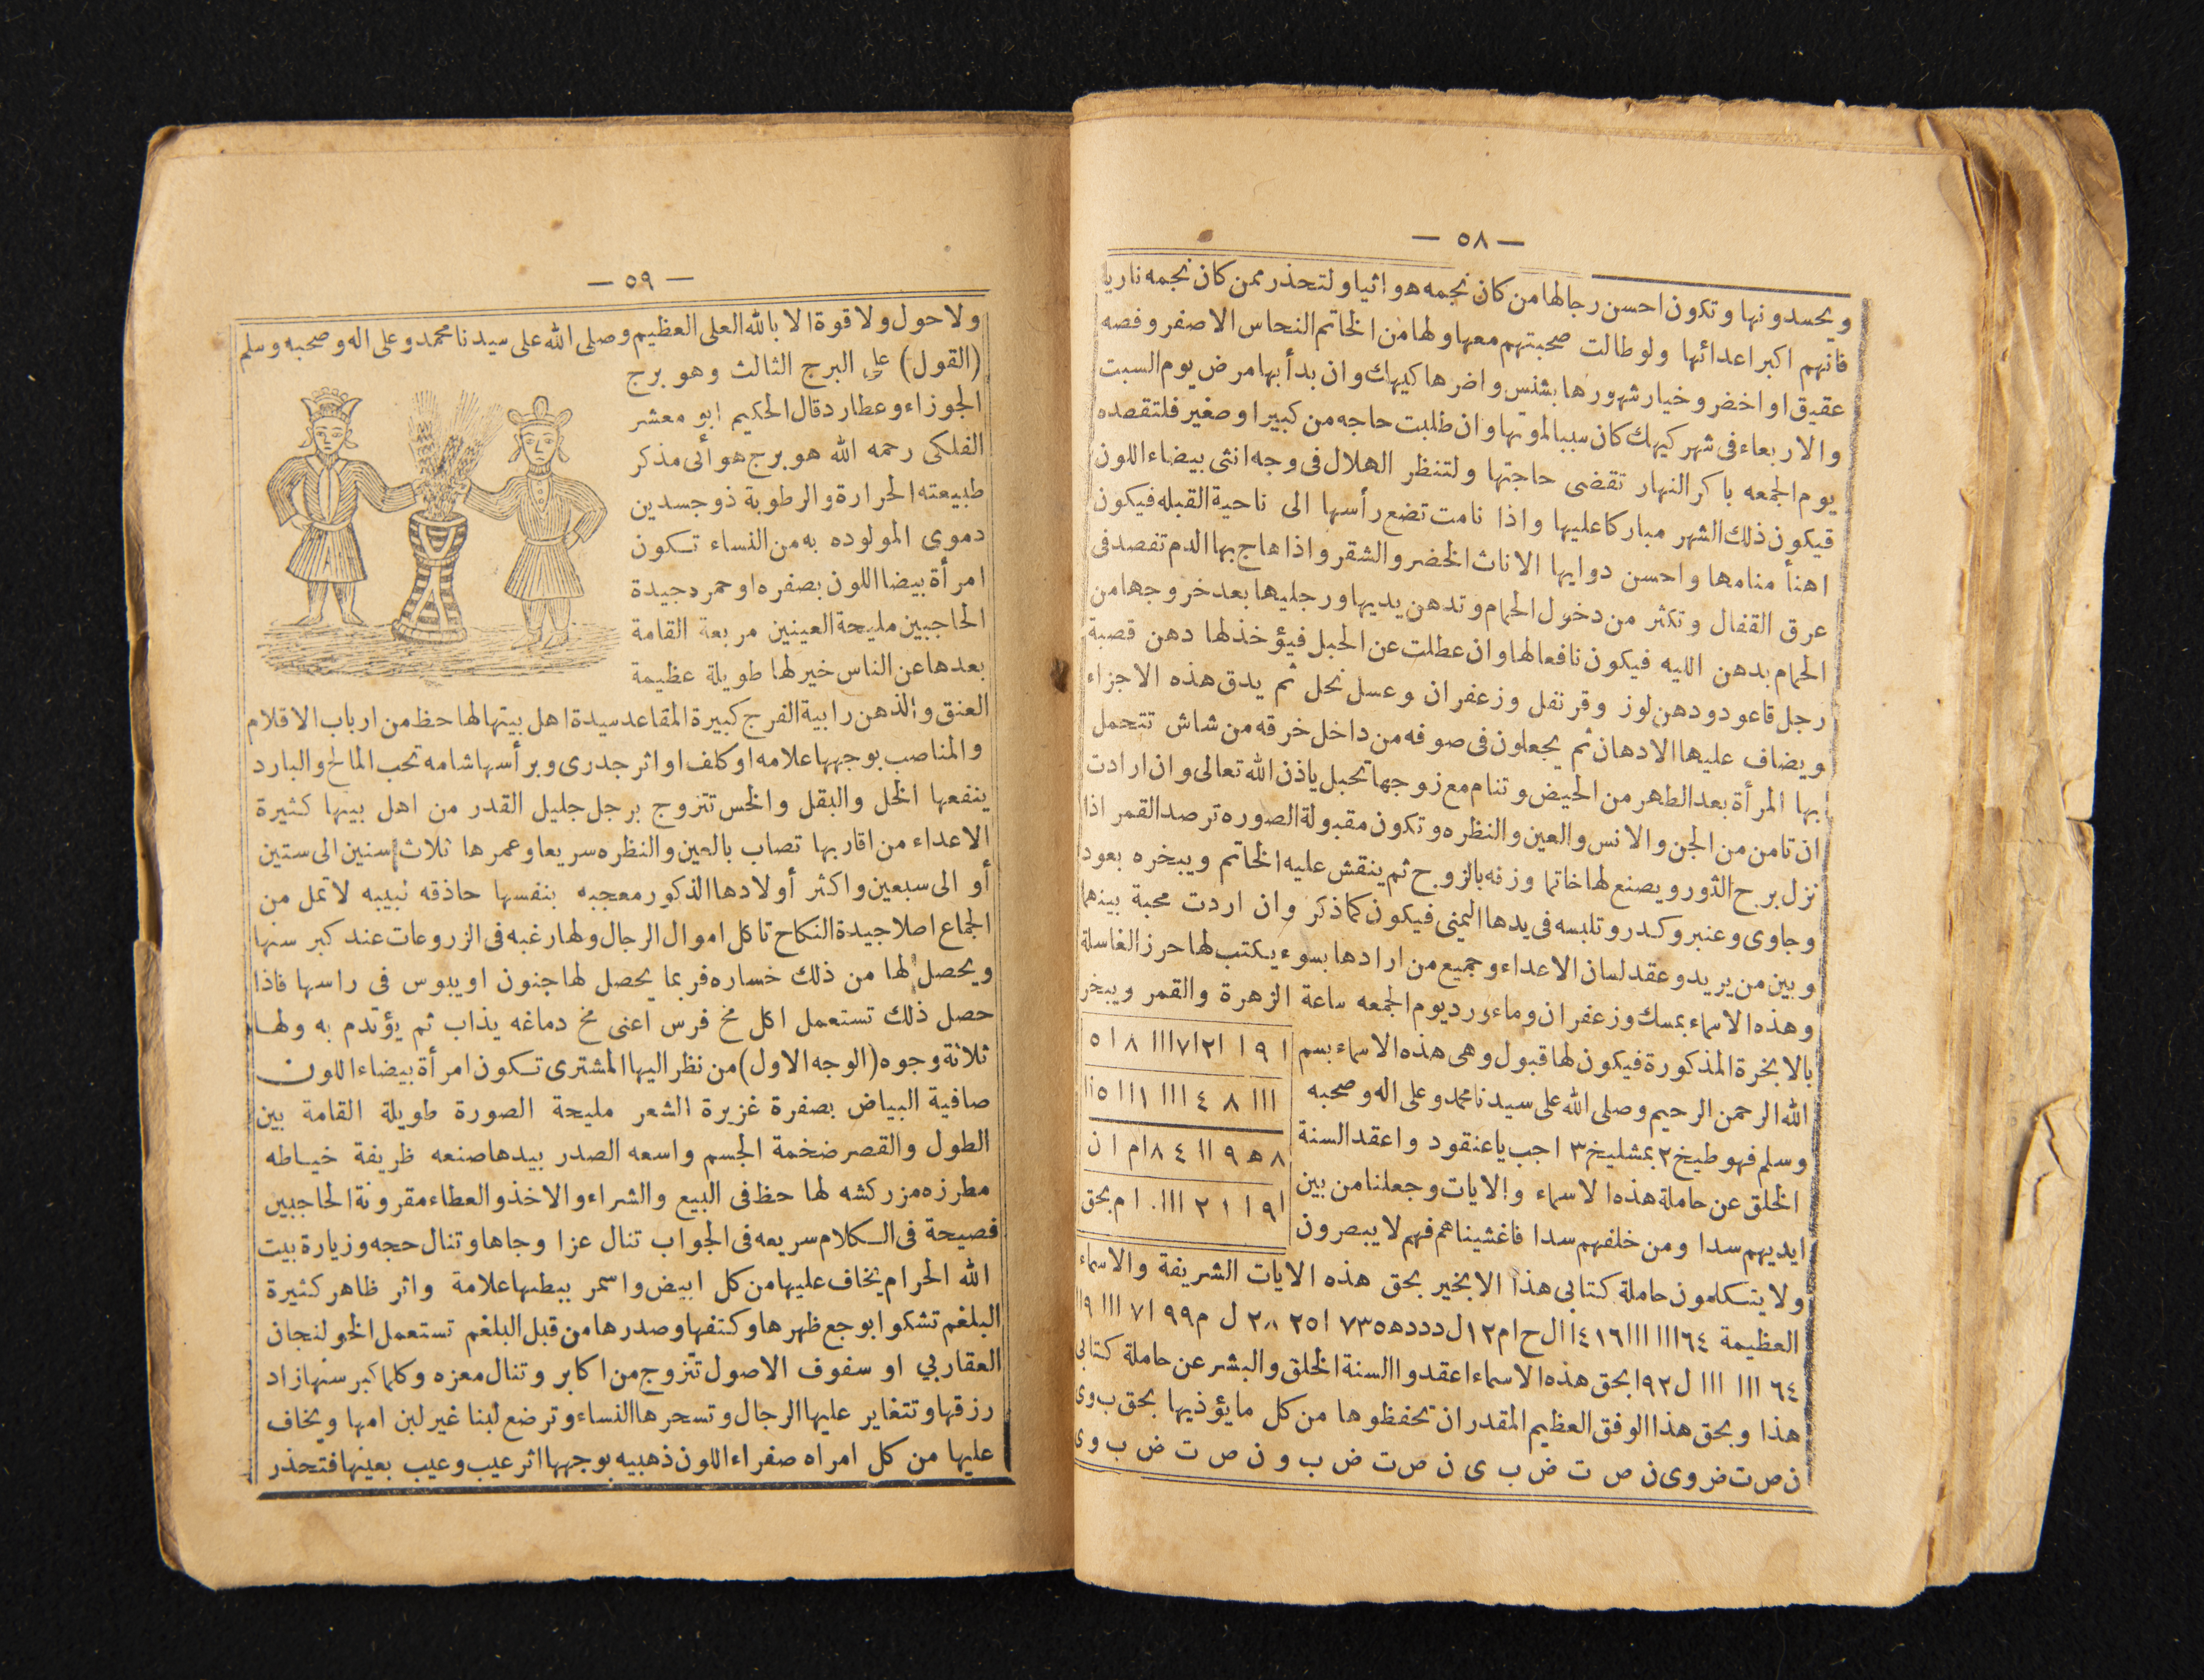 — ٥٨ —
ويحسدونها وتكون احسن رجالها من كان نجمه هوائيا ولتحذر ممن كان نجمه ناريا
فانهم اكبر اعدائها ولو طالت صحبتهم معها ولها من الخاتم النحاس الاصفر وفصه
عقيق او اخضر وخيار شهورها بشنس واضرها كيهك وان بدأ بها مرض يوم السبت
والاربعاء فى شهر كيهك كان سببا لموتها وان طلبت حاجه من كبير او صغير فلتقصده
يوم الجمعه باكر النهار تقضى حاجتها ولتنظر الهلال فى وجه انثى بيضاء اللون
فيكون ذلك الشهر مباركا عليها واذا نامت تضع رأسها الى ناحية القبله فيكون
اهنأ منامها واحسن دوابها الاناث الخضر والشقر واذا هاج بها الدم تفصد فى
عرق القفال وتكثر من دخول الحمام وتدهن يديها ورجليها بعد خروجها من
الحمام بدهن الليه فيكون نافعا لها وان عطلت عن الحبل فيؤخذ لها دهن قصبة
رجل قاعود ودهن لوز وقرنفل وزعفران وعسل نحل ثم يدق هذه الاجزاء
ويضاف عليها الادهان ثم يجعلون فى صوفه من داخل خرقه من شاش تتحمل
بها المرأة بعد الطهر من الحيض وتنام مع زوجها تحبل باذن الله تعالى وان ارادت
ان تامن من الجن والانس والعين والنظره وتكون مقبولة الصوره ترصد القمر اذا
نزل برج الثور ويصنع لها خاتما وزنه بالزوج ثم ينقش عليه الخاتم ويبخره بعود
وجاوى وعنبر وكدر وتلبسه فى يدها اليمنى فيكون كما ذكر وان اردت محبة بينهما
وبين من يريد وعقد لسان الاعداء وجميع من ارادها بسوء يكتب لها حرز الغاسلة
وهذه الاسماء بمسك وزعفران وماء ورد يوم الجمعه ساعة الزهرة والقمر ويبخر
بالابخرة المذكورة فيكون لها قبول وهى هذه الاسماء بسم
الله الرحمن الرحيم وصلى الله على سيدنا محمد وعلى اله وصحبه
وسلم فهو طيخ ٢ بمشليخ ٣ اجب يا عنقود واعقد السنة
الخلق عن حاملة هذه الاسماء والايات وجعلنا من بين
ايديهم سدا ومن خلفهم سدا فاغشيناهم فهم لا يبصرون
ا ٩ ا ا ٢ا ٧ااا ٨ا ٥
ااا ٨ ٤ ااا ااا ٥اا
٨ ه ٩ اا ٤ ٨ام ا ن
ا ٩ ا ا ٢ ااا. ا م بحق
ولا يتكلمون حاملة كتابى هذا الا بخير بحق هذه الايات الشريفة والاسماء
العظيمة
٦٤ ااا ااا ل ٩٢ا بحق هذه الاسماء اعقدوا السنة الخلق والبشر عن حاملة كتابى
هذا وبحق هذا الوفق العظيم المقدر ان تحفظوها من كل ما يؤذيها بحق ب وى
ن ص ت ض وى ن ص ت ض ب ى ن ص ت ض ب و ن ص ت ض ب وى
— ٥٩ —
ولا حول ولا قوة الا بالله العلى العظيم وصلى الله على سيدنا محمد وعلى اله وصحبه وسلم
(القول) على البرج الثالث وهو برج
الجوزاء وعطارد قال الحكيم ابو معشر
الفلكى رحمه الله هو برج هوأئى مذكر
طبيعته الحرارة والرطوبة ذو جسدين
دموى المولوده به من النساء تكون
امرأة بيضا اللون بصفره او حمره جيدة
الحاجبين مليحة العينين مربعة القامة
بعدها عن الناس خير لها طويلة عظيمة
العنق والذهن رابية الفرج كبيرة المقاعد سيدة اهل بيتها لها حظ من ارباب الاقلام
والمناصب بوجهها علامه او كلف او اثر جدرى وبرأسها شامه تحب المالح والبارد
ينفعها الخل والبقل والخس تتزوج برجل جليل القدر من اهل بيتها كثيرة
الاعداء من اقاربها تصاب بالعين والنظره سريعا وعمرها ثلاث سنين الى ستين
أو الى سبعين واكثر أولادها الذكور معجبه بنفسها حاذقه نبيبه لا تمل من
الجماع اصلا جيدة النكاح تاكل اموال الرجال ولها رغبه فى الزروعات عند كبر سنها
ويحصل لها من ذلك خساره فربما يحصل لها جنون او يبوس فى راسها فاذا
حصل ذلك تستعمل اكل مخ فرس اعنى مخ دماغه يذاب ثم يؤتدم به ولها
ثلاثة وجوه (الوجه الاول) من نظر اليها المشترى تكون امرأة بيضاء اللون
صافية البياض بصفرة غزيرة الشعر مليحة الصورة طويلة القامة بين
الطول والقصر ضخمة الجسم واسعه الصدر بيدها صنعه ظريفة خياطه
مطرزه مزركشه لها حظ فى البيع والشراء والاخذ والعطاء مقرونة الحاجبين
فصيحة فى الكلام سريعه فى الجواب تنال عزا وجاها وتنال حجه وزيارة بيت
الله الحرام يخاف عليها من كل ابيض واسمر ببطنها علامة واثر ظاهر كثيرة
البلغم تشكوا بوجع ظهرها وكتفها وصدرها من قبل البلغم تستعمل الخولنجان
العقاربي او سفوف الاصول تتزوج من اكابر وتنال معزه وكلما كبر سنها زاد
رزقها وتتغاير عليها الرجال وتسحرها النساء وترضع لبنا غير لبن امها ويخاف
عليها من كل امراه صفراء اللون ذهبيه بوجهها اثر عيب وعيب بعينها فتحذر